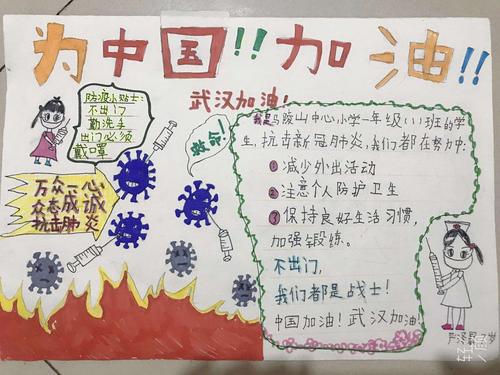 为中国!!加油!!
武汉加油!
防疫小贴士:
不出门
勤洗手
出门必须
戴口罩
救命!
万众一心
众志成诚
抗击肺炎
我是马陵山中心小学一年级(1)班的学
生,抗击新冠肺炎,我们都在努力中:
①减少外出活动
②注意个人防护卫生
③保持良好生活习惯,
加强锻练。
不出门,
我们都是战士!
中国加油!武汉加油!
7岁